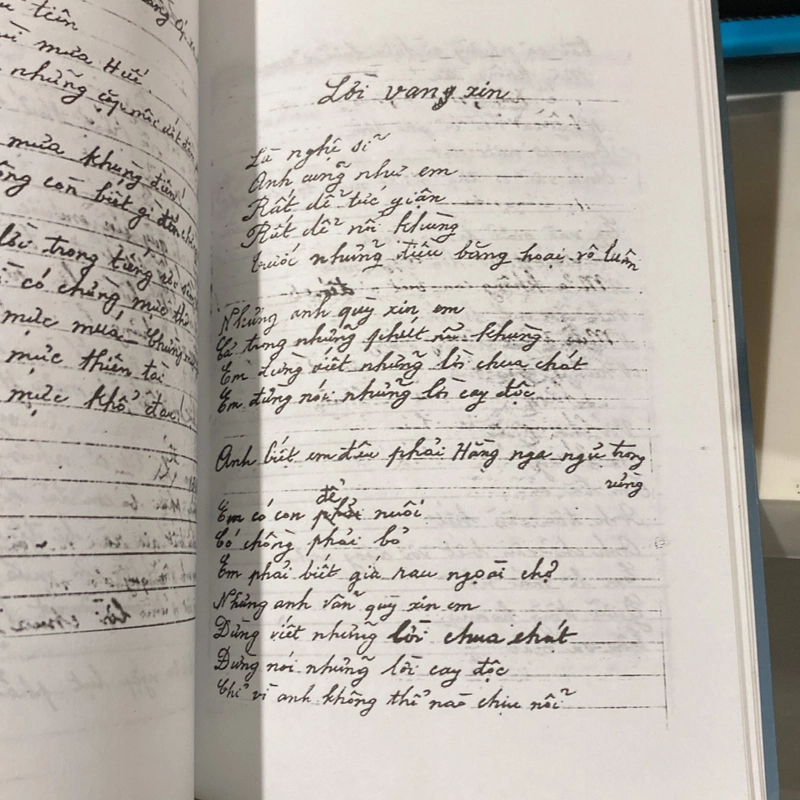 u tiên
mưa Huế
những cặp mắt
mưa khùng điên!
ông còn biết gì đến
trong tiếng
có chừng mực
mực mưa
mực thiên tài
mực khổ đau
Lời vang xin
Là nghệ sĩ
Anh cũng như em
Rất dễ tức giận
Rất dễ nổi khùng
trước những điều băng hoại vô luân
Nhưng anh quỳ xin em
Cả trong những phút nổi khùng
Em đừng viết những lời chua chát
Em đừng nói những lời cay độc
Anh biết em đâu phải Hằng nga ngủ trong
rừng
để
Em có con phải nuôi
Có chồng phải bỏ
Em phải biết giá rau ngoài chợ
Nhưng anh vẫn quỳ xin em
Đừng viết những lời chua chát
Đừng nói những lời cay độc
Chỉ vì anh không thể nào chịu nổi